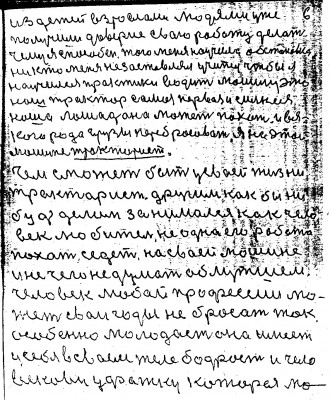 из детей взрослыми людями уже 6
получили доверие сваю работу делат
чему я способен, того меня научило
ни кто меня не заставлял учится чтобы я
научился практики водит машину это
наш трактор самая первая и сильная
наша лошадка она может пахат и вся-
кого рода грузы перебрасоват. я на этой
машине тракторист.
Чем сможет быт у своей жизни
тракторист. другим как бы ни
буд делам занимался как чело-
век любител, не одна его работа
пахат, седет, на сваей машине
и не чего не думат об лутшем.
человек любой професии мо-
жет сваи годы не бросат так
особенно молодаст она имеет
у себя в сваем теле бодрост и чело
вековы удражку которая мо-